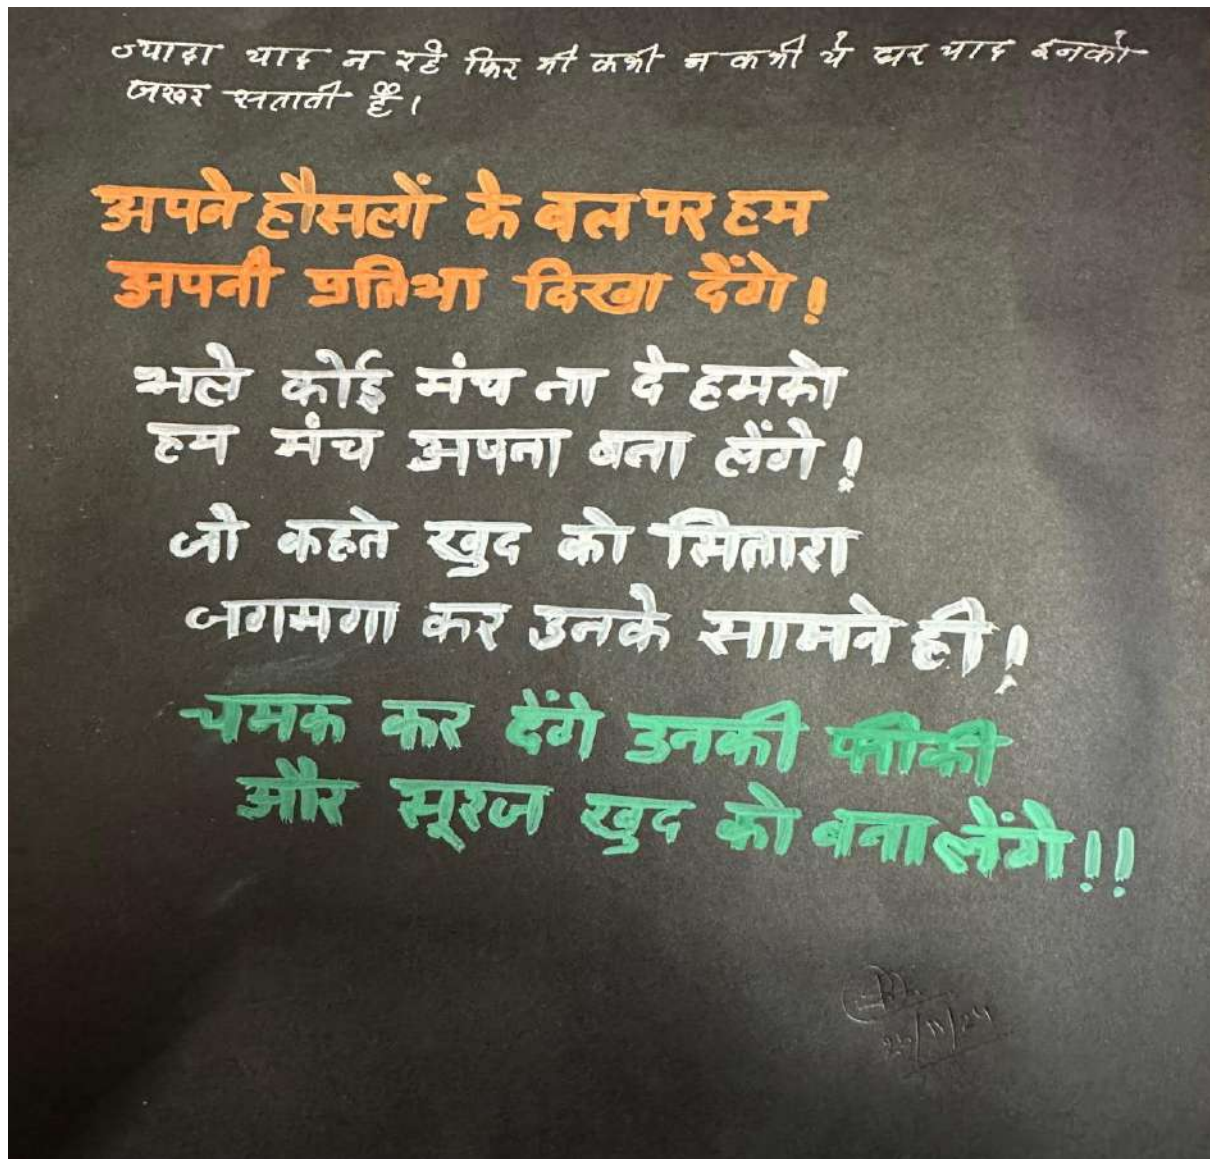 ज्यादा याद न रहे फिर भी कभी न कभी ये घर याद इनको
जरूर सताती है।
अपने हौसलों के बल पर हम
अपनी प्रतिभा दिखा देंगे!
भले कोई मंच ना दे हमको
हम मंच अपना बना लेंगे!
जो कहते खुद को सितारा
जगमगा कर उनके सामने ही!
चमक कर देंगे उनकी फीकी
और सूरज खुद को बना लेंगे!!